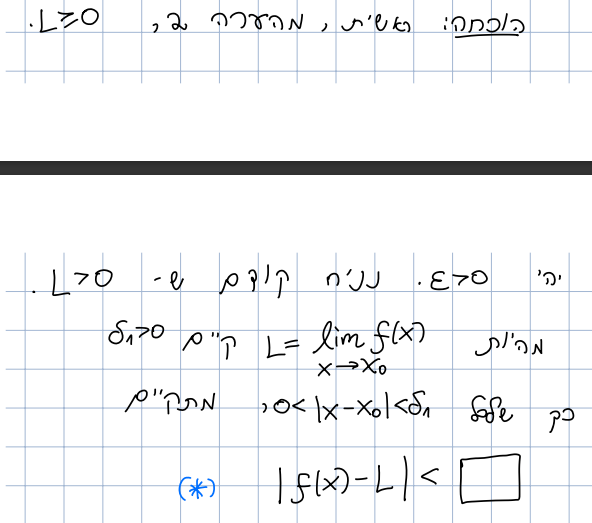 הוכחה: ראשית, מהערה 2, L≥0.
יהי ε>0. נניח קודם ש- L>0.
מהיות L= lim f(x) קיים δ₁>0
x→x₀
כך שלכל 0<|x-x₀|<δ₁, מתקיים
|f(x)-L| < □ (*)